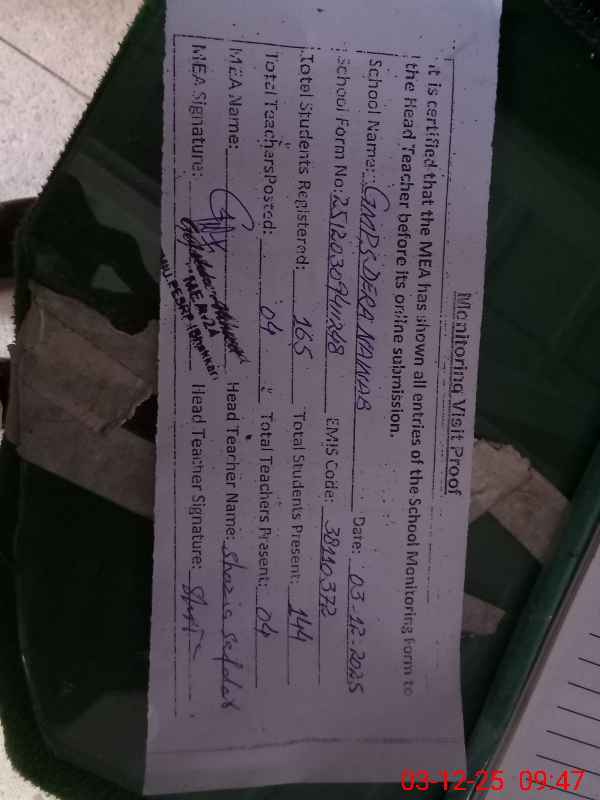 Monitoring Visit Proof
It is certified that the MEA has shown all entries of the School Monitoring Form to
the Head Teacher before its online submission.
School Name: GMPS DERA NAWAB Date: 03-12-2025
School Form No: 2512030941248 EMIS Code: 38110372
Total Students Registered: 165 Total Students Present: 144
Total Teachers Posted: 04 Total Teachers Present: 04
MEA Name: Head Teacher Name: Shazia Safdar
MEA Signature: MEA-24 Head Teacher Signature:
03-12-25 09:47